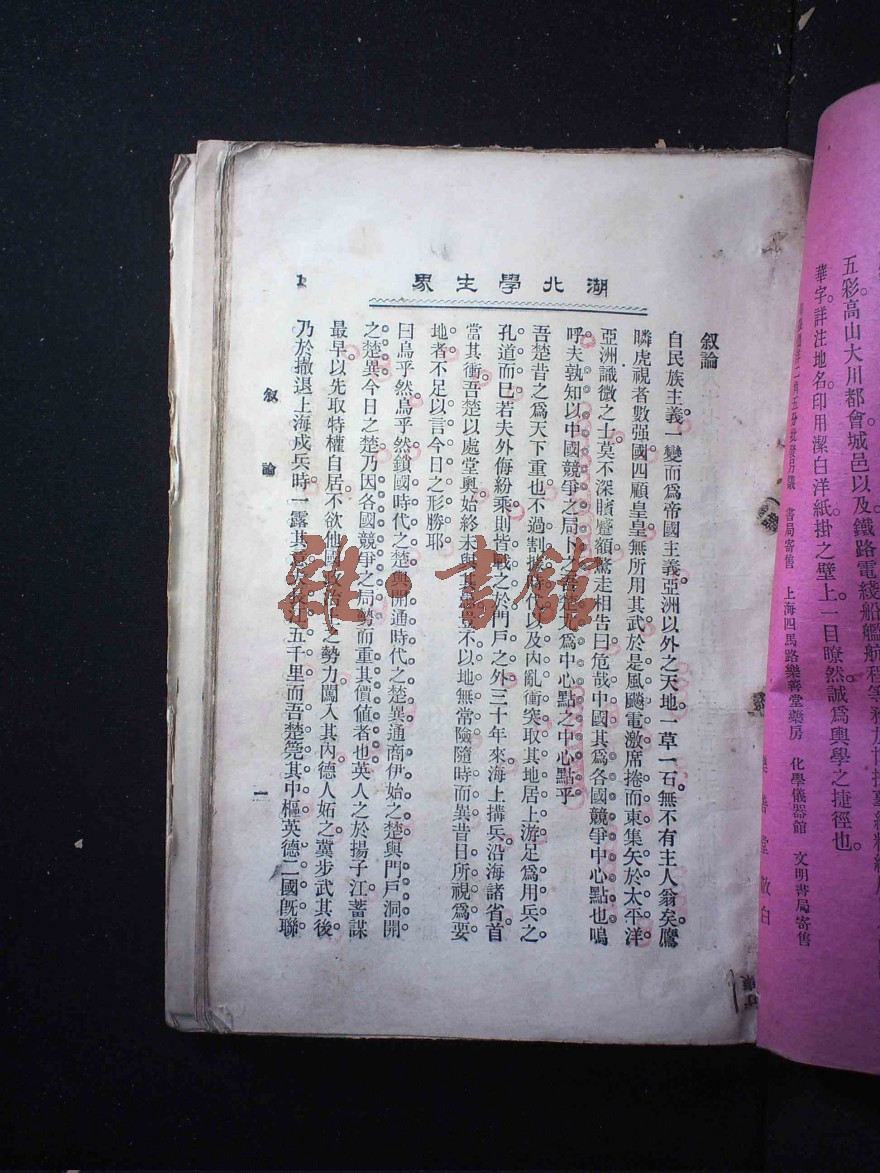 湖北學生界
叙論
自民族主義一變而爲帝國主義。亞洲以外之天地。一草一石。無不有主人翁矣。鷹
瞵虎視者數强國。四顧皇皇。無所用其武。於是風飈電激。席捲而東。集矢於太平洋。
亞洲識微之士。莫不深矉蹙額。驚走相告曰。危哉中國。其爲各國競爭中心點也。嗚
呼。夫孰知以中國競爭之局卜之。吾楚尤爲中心點之中心點乎。
吾楚昔之爲天下重也。不過割據時代。以及內亂衝突。取其地居上游。足爲用兵之
孔道而已。若夫外侮紛乘。則皆戰之於門戶之外。三十年來。海上搆兵。沿海諸省首
當其衝。吾楚以處堂奧。始終未與其。不以地無常險。隨時而異。昔日所視爲要
地者。不足以言今日之形勝耶。
曰。烏乎然。烏乎然。鎖國時代之楚。與開通時代之楚異。通商伊始之楚。與門戶洞開
之楚異。今日之楚。乃因各國競爭之局勢而重其價値者也。英人之於揚子江。蓄謀
最早。以先取特權自居。不欲他國政治上之勢力闖入其內。德人妬之。冀步武其後。
乃於撤退上海戍兵時。一露其。五千里。而吾楚筦其中樞。英德二國旣聯
叙論
一
五彩高山大川都會城邑以及鐵路電綫船艦航程等
華字詳注地名。印用潔白洋紙。掛之壁上。一目瞭然。誠爲興學之捷徑也。
書局寄售 上海四馬路樂善堂藥房 化學儀器館 文明書局寄售
樂善堂敬白
雜·書館